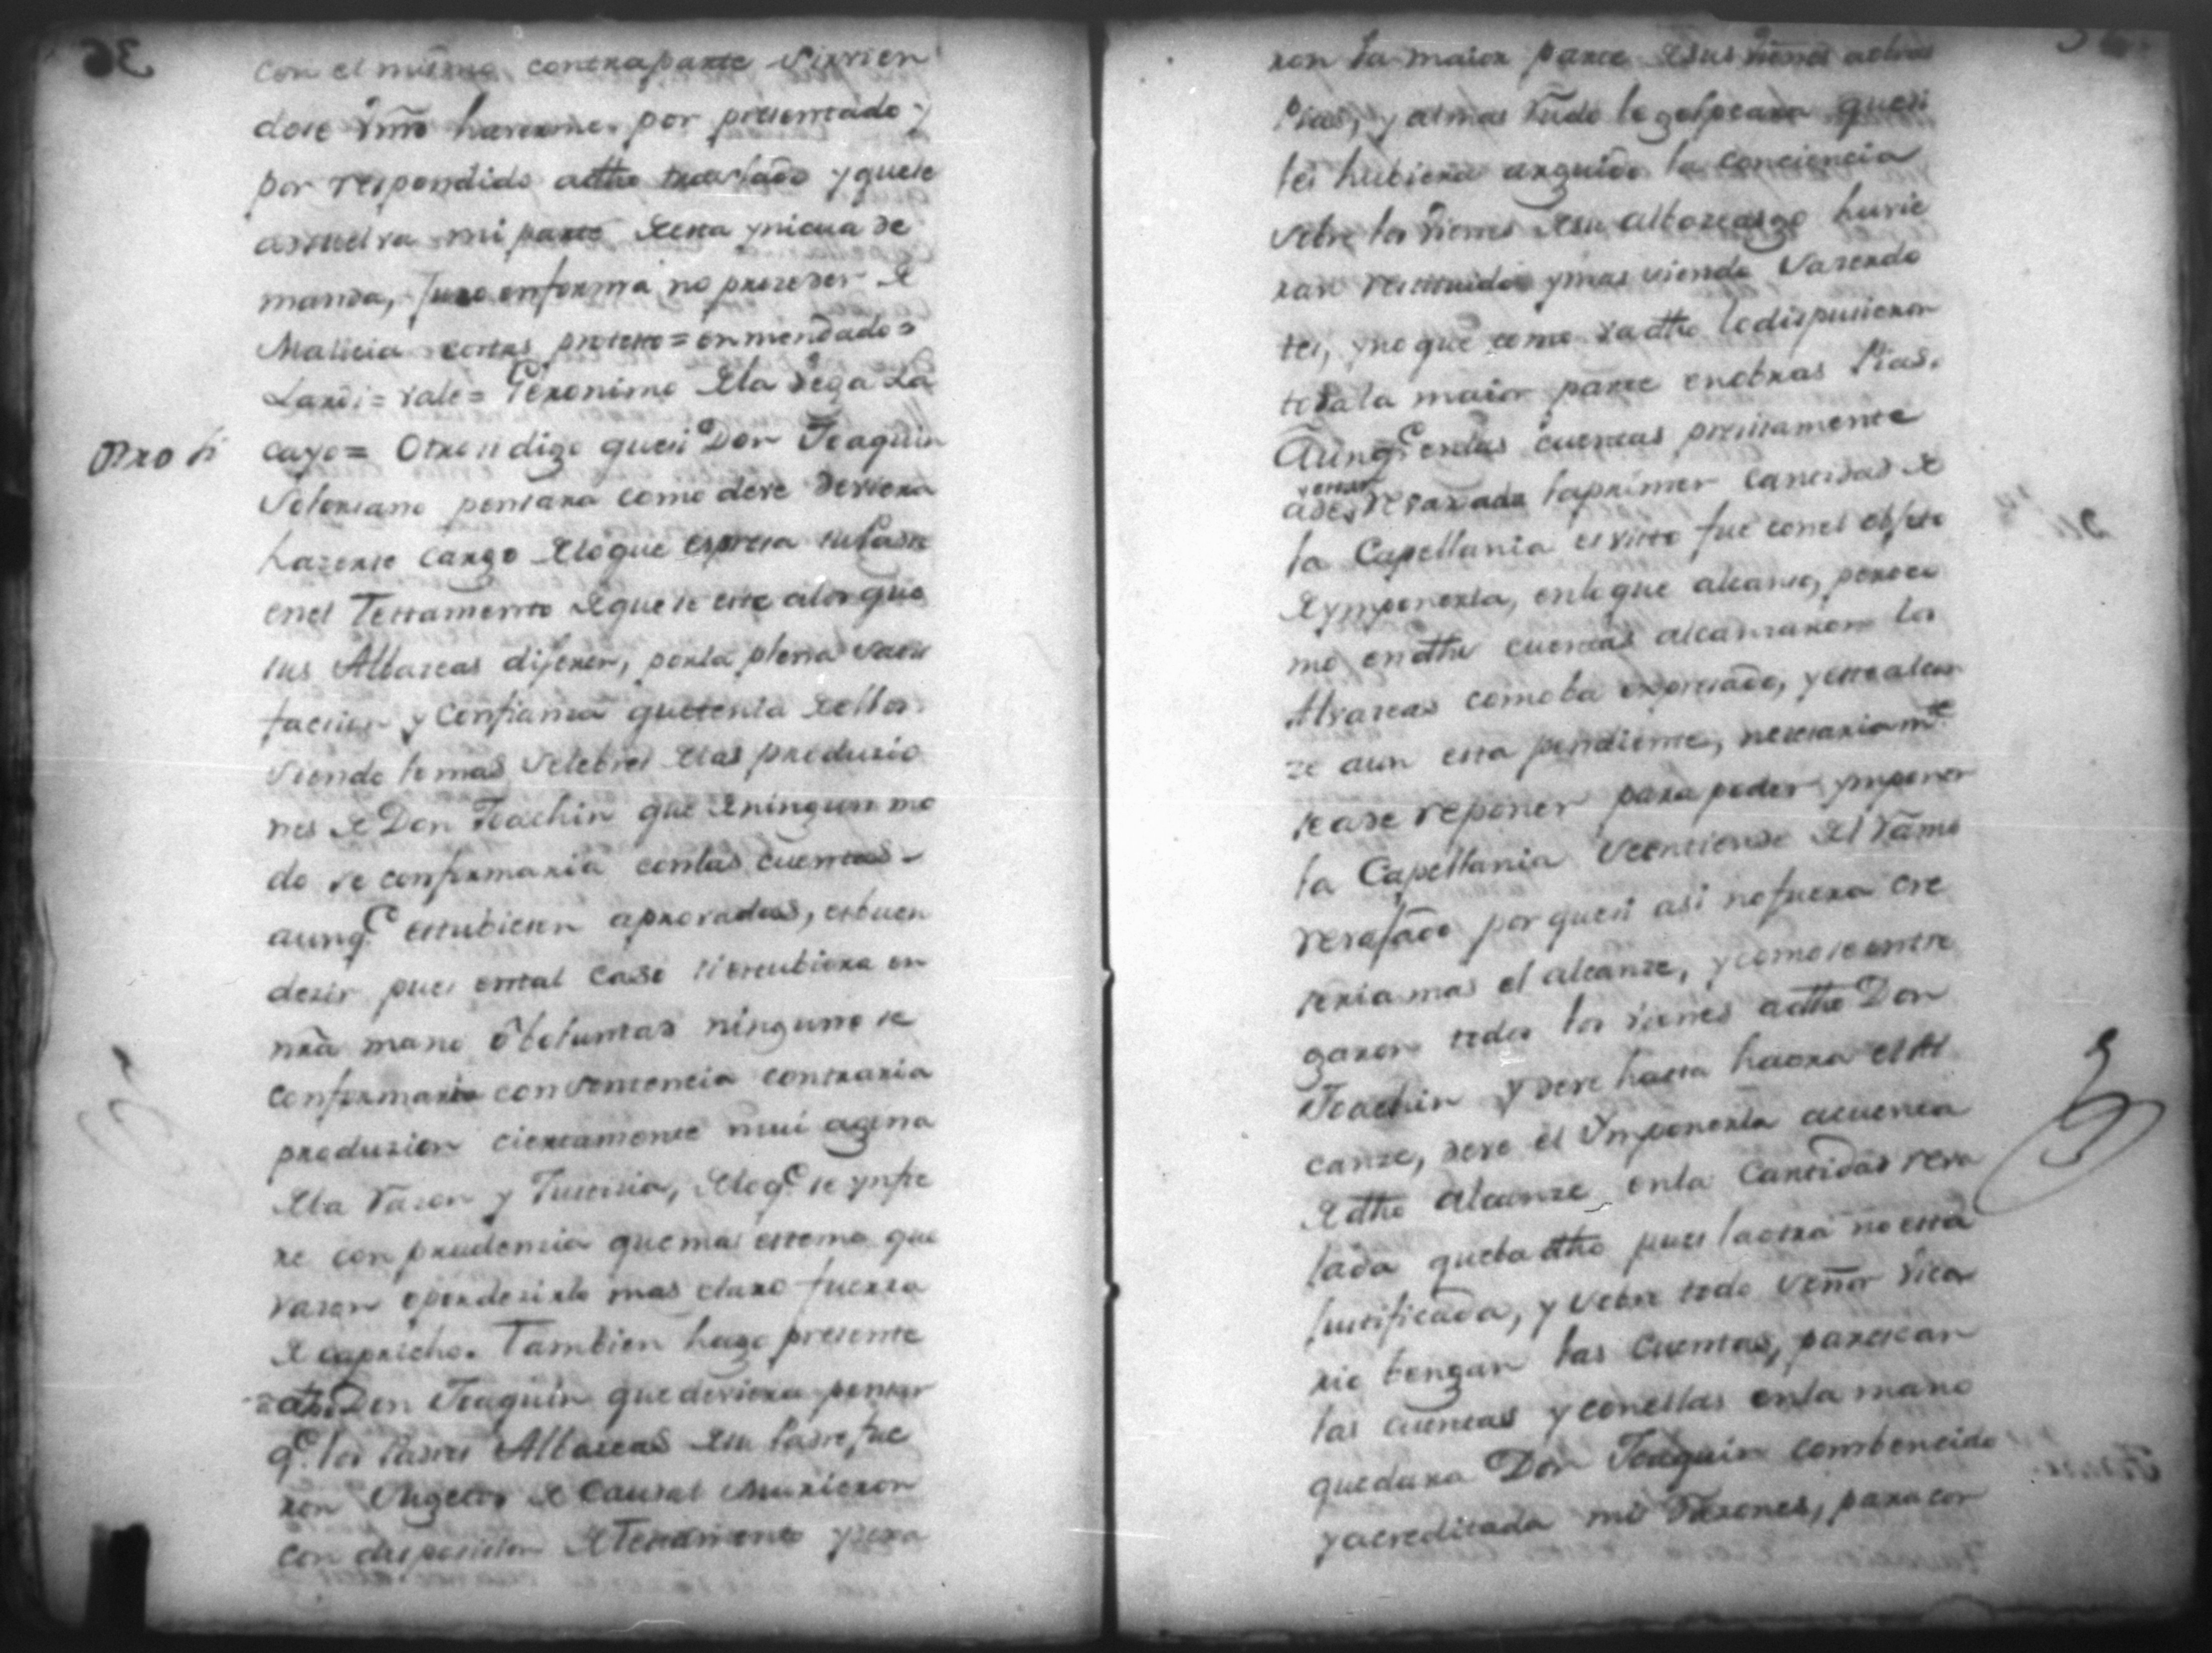 con el mismo, contraparte sirvien
dose Vmd haverme por presentado y
por respondido a dho traslado y que se
absuelva mi parte de esta ynicua de
manda, Juro en forma no prozeder de
Malicia costas protesto = enmendado =
Lardi = vale = Geronimo de la Vega La
Otro si
cayo = Otro si digo que si Don Joaquin
Soloriano pensara como deve deviera
hazerse cargo de lo que espresa su Padre
en el Testamento de que se este a lo que
sus Albaceas dijeren, por la plena satis
faccion y Confianza que tenia de ellos.
siendo lo mas selebre de las produzio
nes de Don Joachin que de ningun mo
do se conformaria con las cuentas
aunq.e estubiesen aprovadas, es buen
dezir pues en tal caso si estubiera en
nrã mano ô boluntad ninguno se
conformaria con sentencia contraria
produzion ciertamente mui agena
de la Razon y Justicia, de lo q.e se ynfie
re con prudencia que mas es tema que
razon o por dezirlo mas claro fuerza
de capricho. Tambien hago presente
a dho Don Joaquin que deviera pensar
q.e los Padres Albaceas de su Padre fue
ron Sugetos de Caudal Murieron
con disposicion de Testamento y
ron la maior parte de sus vienes a obras
Pias, y al mas rudo le golpeara que si
les hubiera arguido la conciencia
sobre los vienes de su albaceasgo huvie
ran restituido y mas siendo Sazerdo
tes, y no que como va dho lo dispusieron
toda la maior parte en obras Pias.
Aunq.e en las cuentas precisamente
a de rebajada la primer cantidad de
la Capellania es visto fue con el objeto
de ymponerla, en lo que alcanse, pero co
mo en dhas cuentas alcanzaron los
Alvazeas como ba expresado, y este alcan
ze aun esta pendiente, nesesariam.te
se a de reponer para poder ymponer
la Capellania se entiende del Ramo
revajado por que si asi no fuera cre
seria mas el alcanze, y como se entre
garon todos los vienes a dho Don
Joachin y deve hasta haora el Al
canze, deve el Ymponerla a cuenta
de dho Alcanze en la Cantidad reva
jada que ba dho pues la otra no esta
justificada, y sobre todo Señor Vica
rio bengan las Cuentas, parescan
las cuentas y con ellas en la mano
quedara Don Joaquin combencido
y acreditada mis Razones, para con